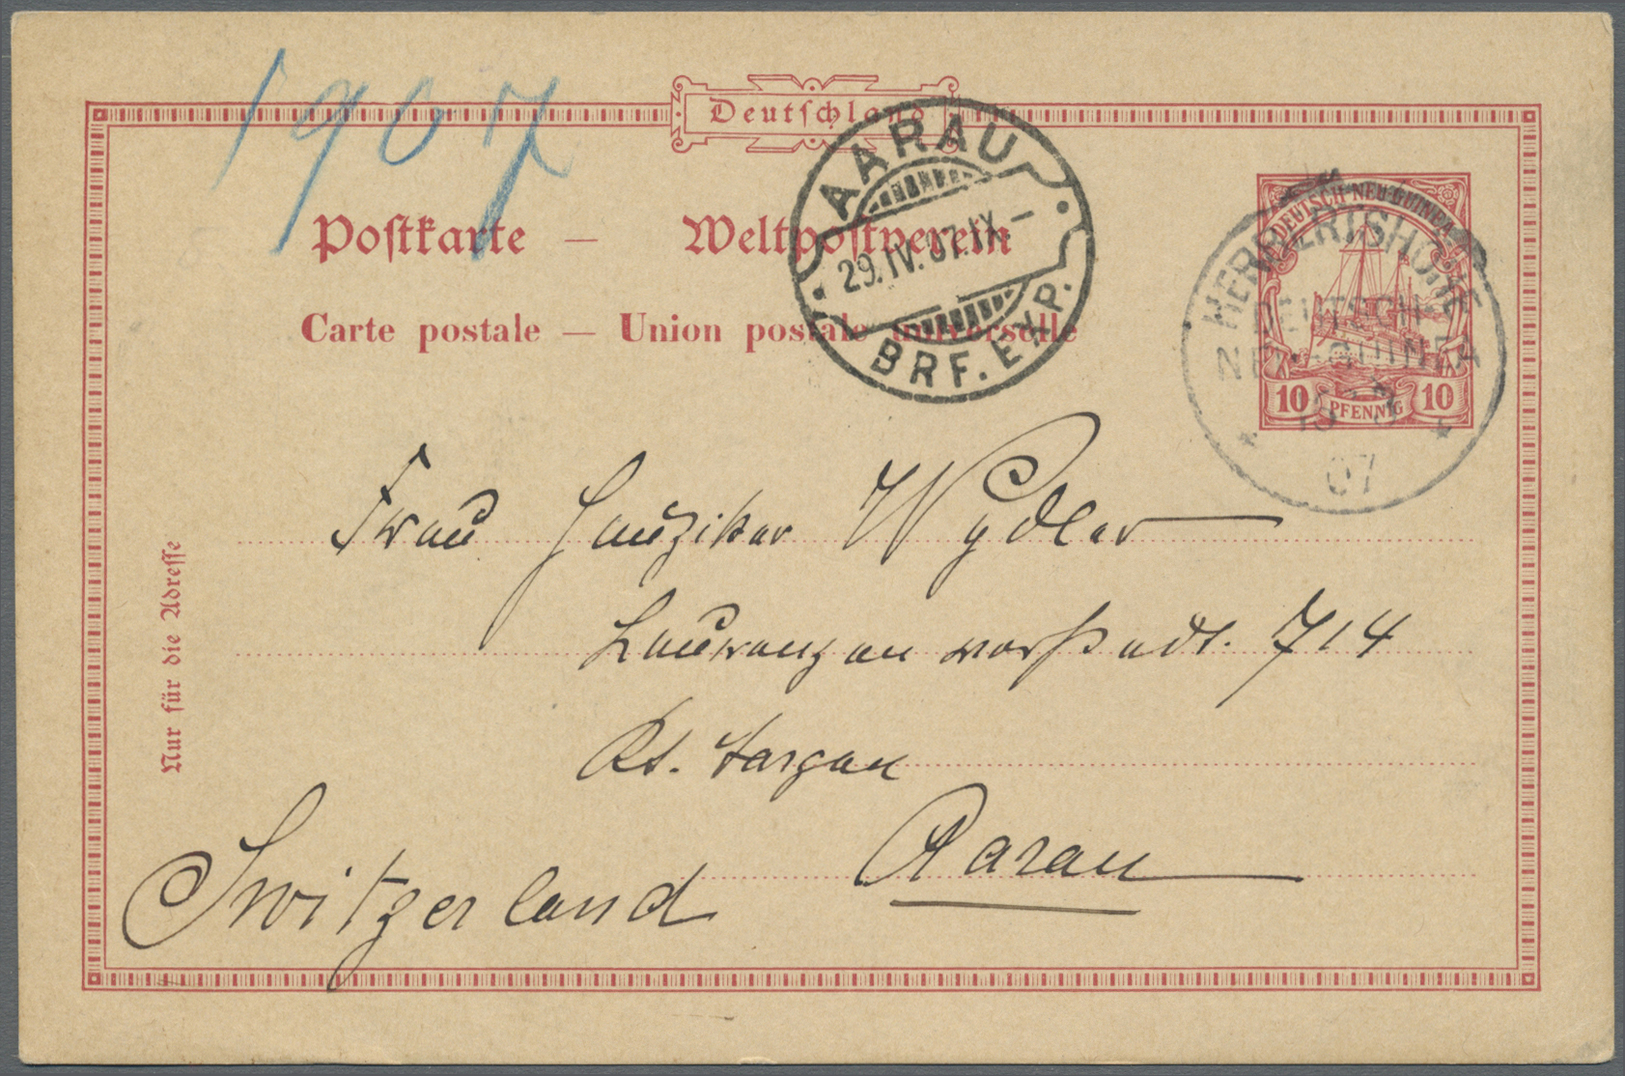 1907
Deutschland
Postkarte — Weltpostverein
Carte postale — Union postale universelle
AARAU
29.IV.07.IX.—
BRF. EXP.
DEUTSCH-NEU-GUINEA
10 PFENNIG 10
HERBERTSHÖHE
DEUTSCH-
NEU-GUINEA
07
Nur für die Adresse
Frau Hunziker Wydler
vorstadt. 714
Kt. Aargau
Aarau
Switzerland